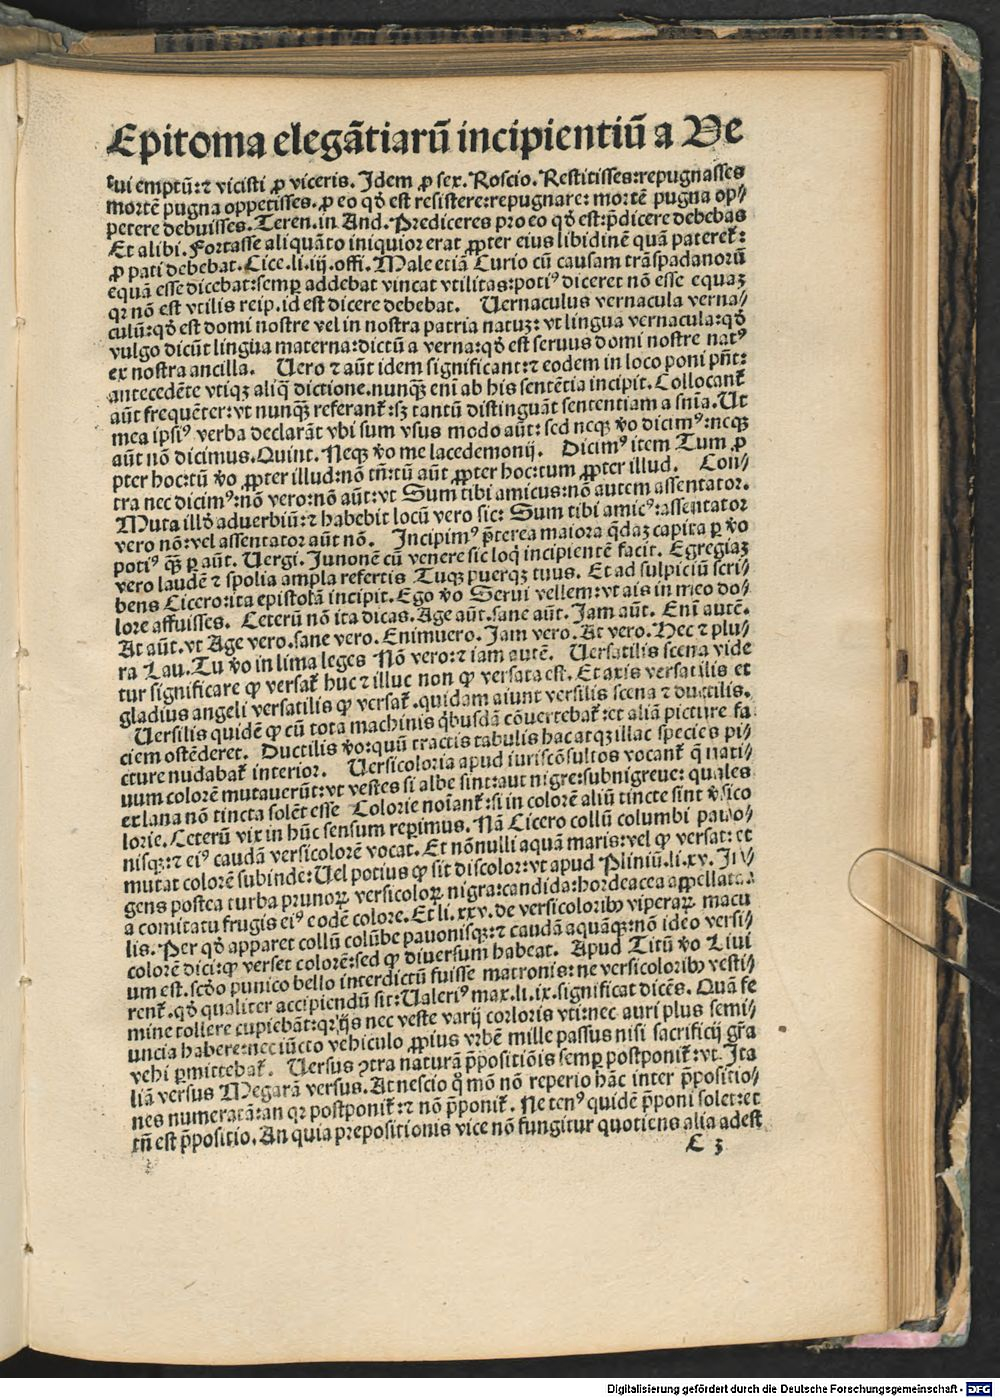 Epitoma elegãtiarũ incipientiũ a Ve
tui emptũ:⁊ vicisti ꝓ viceris. Idem ꝓ sex. Roscio. Restitisses:repugnasses
mortẽ pugna oppetisses. ꝓ eo qđ est resistere:repugnare: mortẽ pugna op⸗
petere debuisses. Teren. in And. Prediceres pro eo qđ est:p̃dicere debebas
Et alibi. Fortasse aliquãto iniquior erat ꝓpter eius libidinẽ quã pateret᷑:
ꝓ pati debebat. Cice. li. iij. offi. Male etiã Curio cũ causam trãspadanorũ
equã esse dicebat:semꝑ addebat vincat vtilitas:potiꝰ diceret nõ esse equaꝫ
qꝛ nõ est vtilis reip. id est dicere debebat. Vernaculus vernacula verna⸗
culũ:qđ est domi nostre vel in nostra patria natuꝫ: vt lingua vernacula:qđ
vulgo dicũt lingua materna:dictũ a verna:qđ est seruus domi nostre natꝰ
ex nostra ancilla. Vero ⁊ aũt idem significant:⁊ eodem in loco poni pñt:
antecedẽte vtiqꝫ aliq̃ dictione.nunqꝫ̃ enĩ ab his sentẽtia incipit. Collocant᷑
aũt frequẽter:vt nunqꝫ̃ referant᷑:sꝫ tantũ distinguãt sententiam a sñia. Ut
mea ipsiꝰ verba declarãt vbi sum vsus modo aũt: sed neqꝫ v̊o dicimꝰ:neqꝫ
aũt nõ dicimus. Quint. Neqꝫ v̊o me lacedemonij. Dicimꝰ item Tum ꝓ
pter hoc:tũ v̊o ꝓpter illud:nõ tñ:tũ aũt ꝓpter hoc:tum ꝓpter illud. Con⸗
tra nec dicimꝰ:nõ vero:nõ aũt:vt Sum tibi amicus:nõ autem assentator.
Muta illđ aduerbiũ:⁊ habebit locũ vero sic: Sum tibi amicꝰ:assentator
vero nõ:vel assentator aũt nõ. Incipimꝰ p̃terea maiora q̃daꝫ capita ꝑ v̊o
potiꝰ qꝫ̃ ꝑ aũt. Vergi. Junonẽ cũ venere sic loq̃ incipientẽ facit. Egregiaꝫ
vero laudẽ ⁊ spolia ampla refertis Tuqꝫ puerqꝫ tuus. Et ad sulpiciũ scri⸗
bens Cicero:ita epistolã incipit. Ego v̊o Serui vellem:vt ais in meo do⸗
lore affuisses. Ceterũ nõ ita dicas. Age aũt. sane aũt. Jam aũt. Enĩ autẽ.
At aũt. vt Age vero. sane vero. Enimuero. Jam vero. At vero. Hec ⁊ plu⸗
ra Lau. Tu v̊o in lima leges Nõ vero:⁊ iam autẽ. Versatilis scena vide
tur significare ꝙ versat᷑ huc ⁊ illuc non ꝙ versata est. Et axis versatilis et
gladius angeli versatilis ꝙ versat᷑.quidam aiunt versilis scena ⁊ ductilis.
Versilis quidẽ ꝙ cũ tota machinis q̃busdã cõuertebat᷑:et aliã picture fa
ciem ostẽderet. Ductilis v̊o:quũ tractis tabulis hac atqꝫ illac species pi⸗
cture nudabat᷑ interior. Versicoloria apud iuriscõsultos vocant᷑ q̃ nati⸗
uum colorẽ mutauerũt:vt vestes si albe sint:aut nigre:subnigreue: quales
ex lana nõ tincta solẽt esse Colorie noĩant᷑:si in colorẽ aliũ tincte sint v̊sico
lorie. Ceterũ vix in hũc sensum reꝑimus. Nã Cicero collũ columbi pauo⸗
nisqꝫ:⁊ eiꝰ caudã versicolorẽ vocat. Et nõnulli aquã maris:vel ꝙ versat: et
mutat colorẽ subinde: Vel potius ꝙ sit discolor:vt apud Pliniũ.li.xv. In⸗
gens postea turba prunoꝝ versicoloꝝ nigra:candida:hordeacea appellata
a comitatu frugis eiꝰ eodẽ colore. Et li. xxv. de versicoloribꝰ viperaꝝ macu
lis. Per qđ apparet collũ colũbe pauonisqꝫ:⁊ caudã aquãqꝫ:nõ ideo versi⸗
colorẽ dici:ꝙ verset colorẽ:sed ꝙ diversum habeat. Apud Titũ v̊o Livi
um est. scđo punico bello interdictũ fuisse matronis: ne versicoloribꝰ vesti⸗
rent᷑.qđ qualiter accipiendũ sit:Valeriꝰ max.li.ix.significat dicẽs. Quã fe
mine tollere cupiebãt:qꝛ ijs nec veste varij corloris vti:nec auri plus semi⸗
uncia habere:nec iũcto vehiculo ꝓpius vrbẽ mille passus nisi sacrificij gr̃a
vehi ꝑmittebat᷑. Versus ↄtra naturã p̃positiõis semꝑ postponit᷑:vt. Ita
liã versus Megarã versus. At nescio q̊ mõ nõ reperio hãc inter p̃positio⸗
nes numeratã:an qꝛ postponit᷑:⁊ nõ p̃ponit᷑. Ne tenꝰ quidẽ p̃poni solet:et
tñ est p̃positio. An quia prepositionis vice nõ fungitur quotiens alia adest
E 3
Digitalisierung gefördert durch die Deutsche Forschungsgemeinschaft - DFG